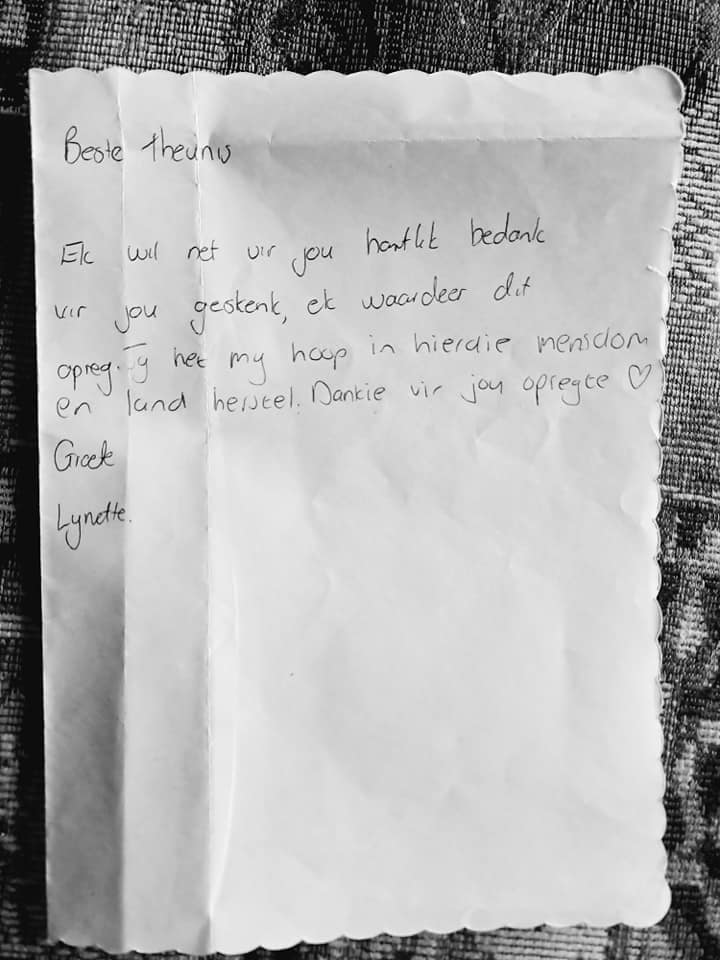 Beste Theunis
Ek wil net vir jou hartlik bedank
vir jou geskenk, ek waardeer dit
opreg. Jy het my hoop in hierdie mensdom
en land herstel. Dankie vir jou opregte ♡
Groete
Lynette.